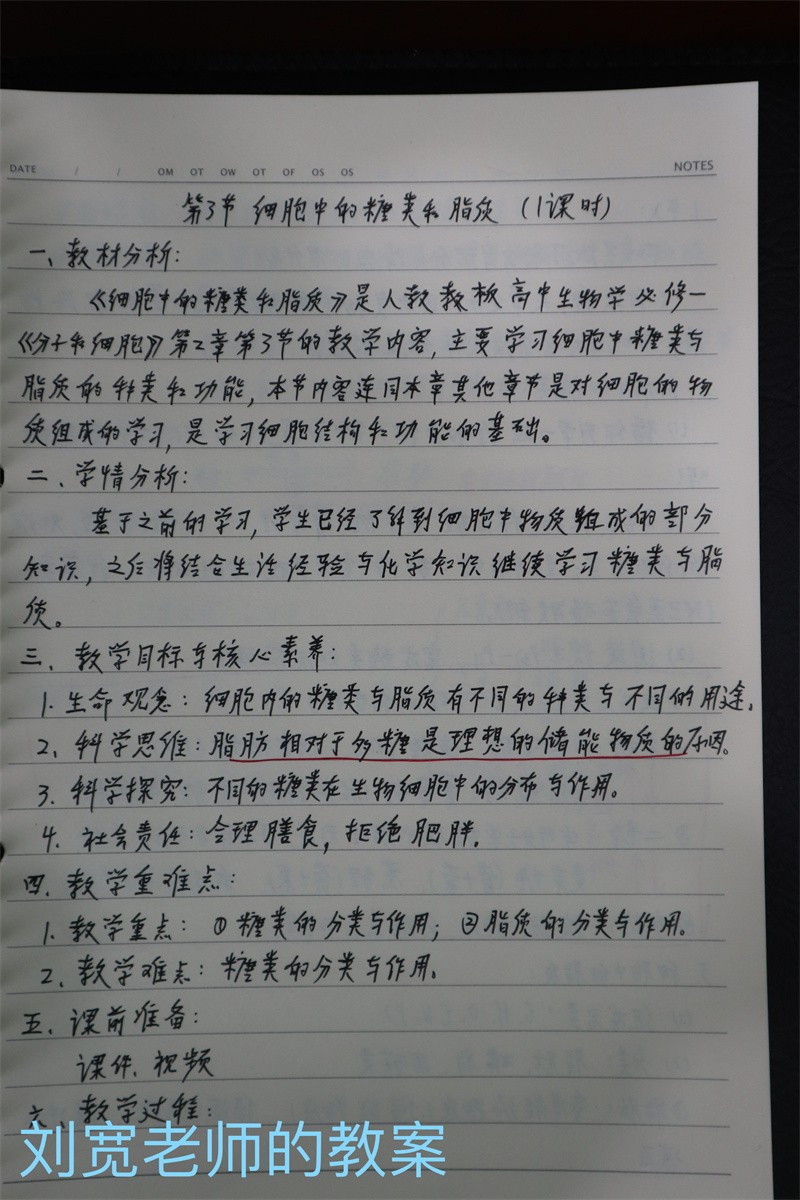 DATE / / OM OT OW OT OF OS OS NOTES
第3节 细胞中的糖类和脂质 (1课时)
一、教材分析:
《细胞中的糖类和脂质》是人教教版高中生物学必修一
《分子和细胞》第2章第3节的教学内容,主要学习细胞中糖类与
脂质的种类和功能,本节内容连同本章其他章节是对细胞的物
质组成的学习,是学习细胞结构和功能的基础。
二、学情分析:
基于之前的学习,学生已经了解到细胞中物质组成的部分
知识,之后将结合生活经验与化学知识继续学习糖类与脂
质。
三、教学目标与核心素养:
1.生命观念:细胞内的糖类与脂质有不同的种类与不同的用途。
2、科学思维:脂肪相对于多糖是理想的储能物质的原因。
3.科学探究:不同的糖类在生物细胞中的分布与作用。
4.社会责任:合理膳食,拒绝肥胖。
四、教学重难点:
1.教学重点:①糖类的分类与作用;②脂质的分类与作用。
2、教学难点:糖类的分类与作用。
五、课前准备:
课件、视频
六、教学过程:
刘宽老师的教案